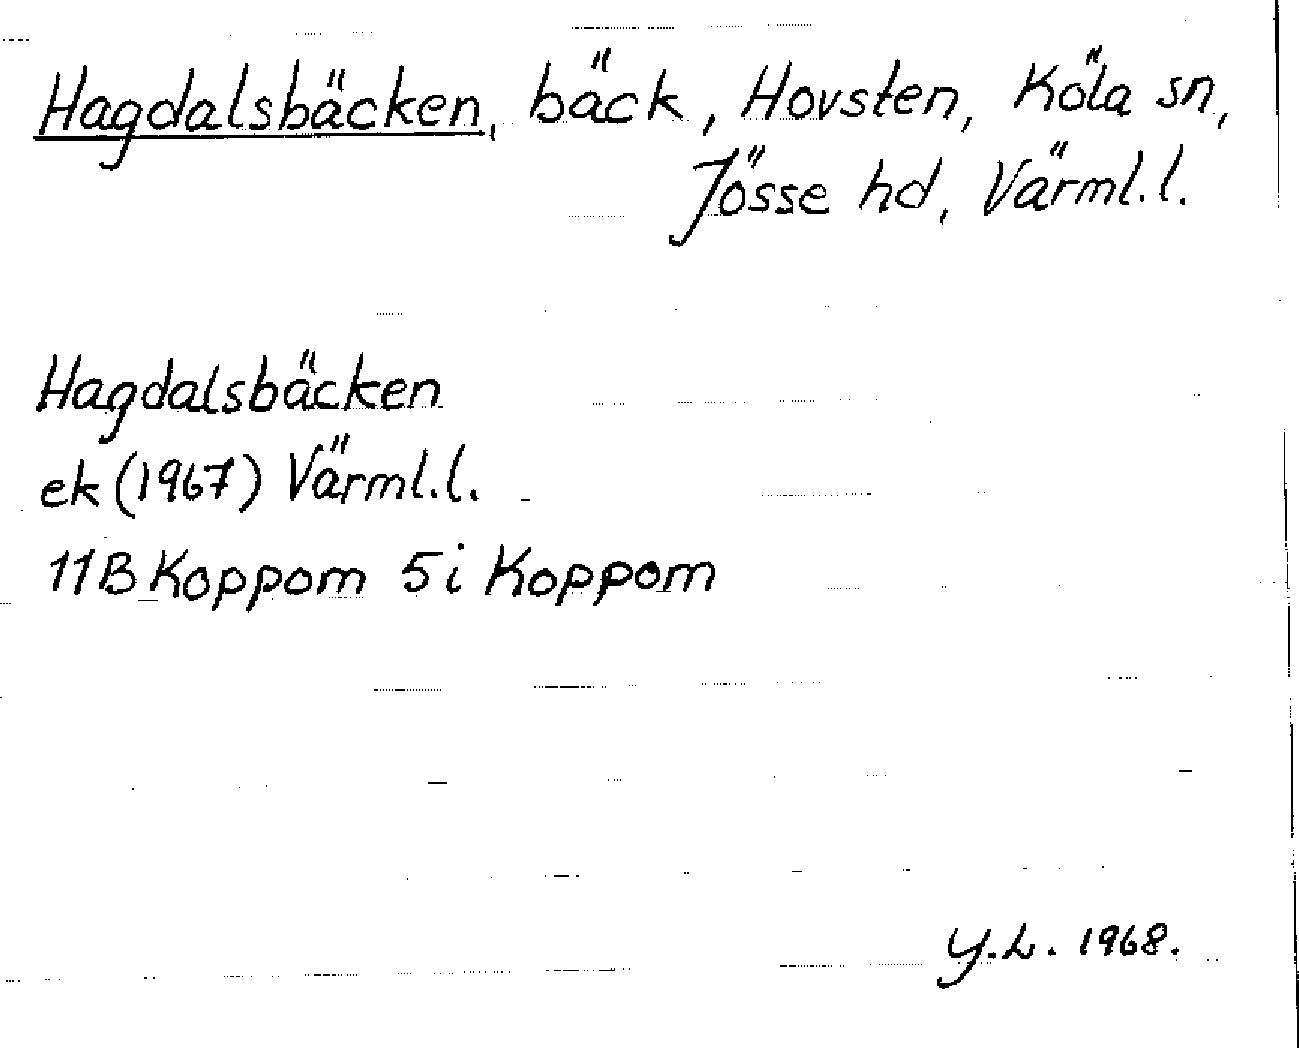 Hagdalsbäcken, bäck, Hovsten, Köla sn,
Jösse hd, Värml.l.
Hagdalsbäcken
ek (1967) Värml.l.
11B Koppom 5i Koppom
Y.L. 1968.